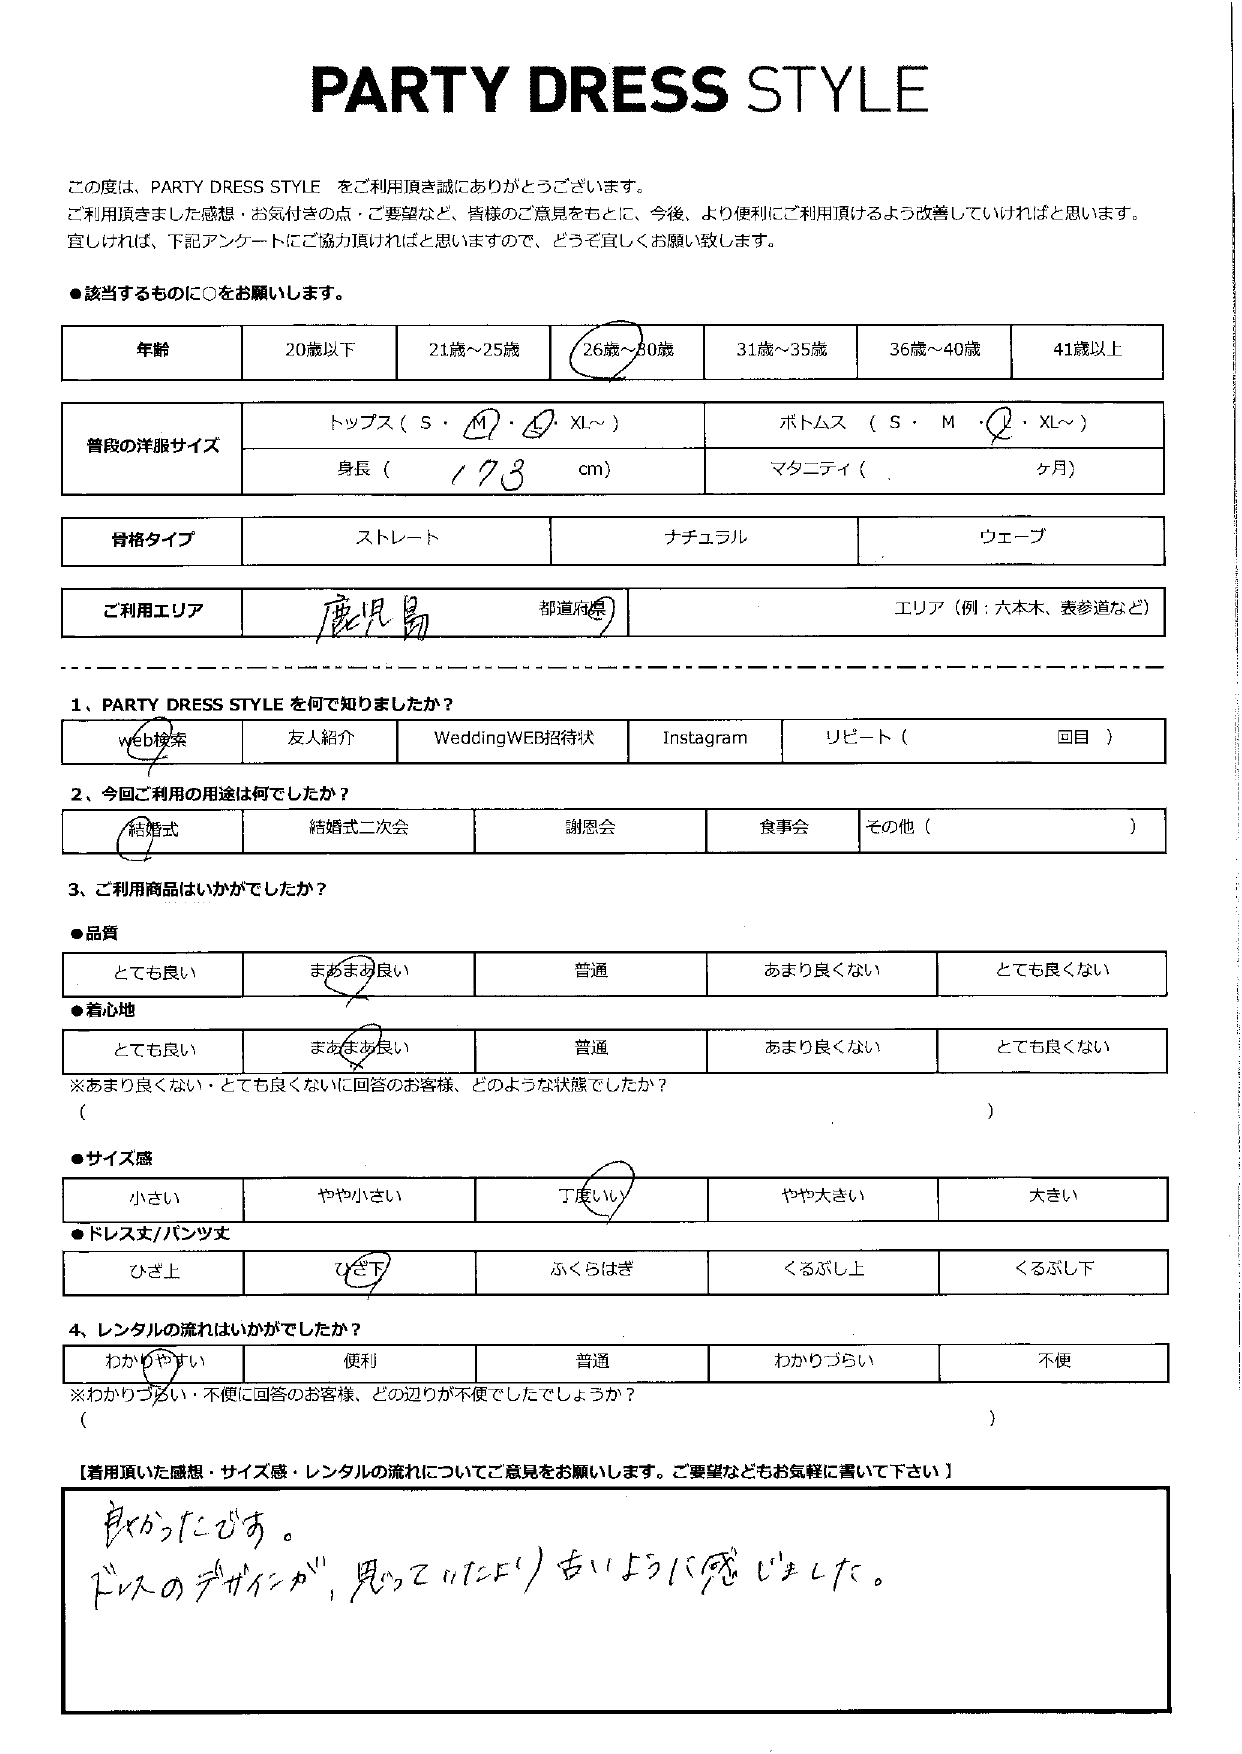 PARTY DRESS STYLE
この度は、PARTY DRESS STYLE　をご利用頂き誠にありがとうございます。
ご利用頂きました感想・お気付きの点・ご要望など、皆様のご意見をもとに、今後、より便利にご利用頂けるよう改善していければと思います。
宜しければ、下記アンケートにご協力頂ければと思いますので、どうぞ宜しくお願い致します。
●該当するものに○をお願いします。
年齢 20歳以下 21歳～25歳 26歳～30歳 31歳～35歳 36歳～40歳 41歳以上
普段の洋服サイズ
トップス ( S ・ M ・ L ・ XL～ ) ボトムス ( S ・ M ・ L ・ XL～ )
身長 ( 173 cm) マタニティ ( ヶ月)
骨格タイプ ストレート ナチュラル ウェーブ
ご利用エリア 鹿児島 都道府県 エリア（例：六本木、表参道など）
1、PARTY DRESS STYLE を何で知りましたか？
web検索 友人紹介 WeddingWEB招待状 Instagram リピート ( 回目 )
2、今回ご利用の用途は何でしたか？
結婚式 結婚式二次会 謝恩会 食事会 その他 ( )
3、ご利用商品はいかがでしたか？
●品質
とても良い まあまあ良い 普通 あまり良くない とても良くない
●着心地
とても良い まあまあ良い 普通 あまり良くない とても良くない
※あまり良くない・とても良くないに回答のお客様、どのような状態でしたか？
( )
●サイズ感
小さい やや小さい 丁度いい やや大きい 大きい
●ドレス丈/パンツ丈
ひざ上 ひざ下 ふくらはぎ くるぶし上 くるぶし下
4、レンタルの流れはいかがでしたか？
わかりやすい 便利 普通 わかりづらい 不便
※わかりづらい・不便に回答のお客様、どの辺りが不便でしたでしょうか？
( )
【着用頂いた感想・サイズ感・レンタルの流れについてご意見をお願いします。ご要望などもお気軽に書いて下さい 】
良かったです。
ドレスのデザインが、思っていたより古いように感じました。